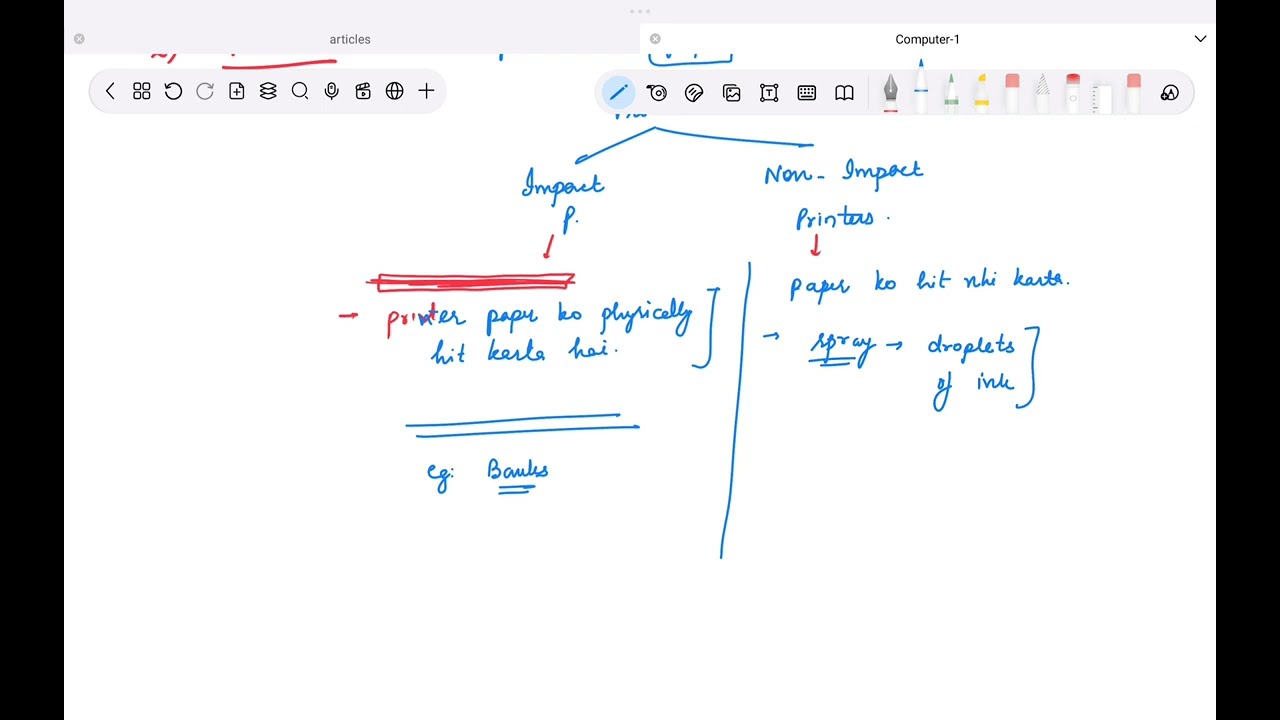 articles
Computer-1
Impact
P.
Non- Impact
Printers.
printer paper ko physically
hit karta hai.
paper ko hit nhi karta.
spray → droplets
of ink
eg: Banks